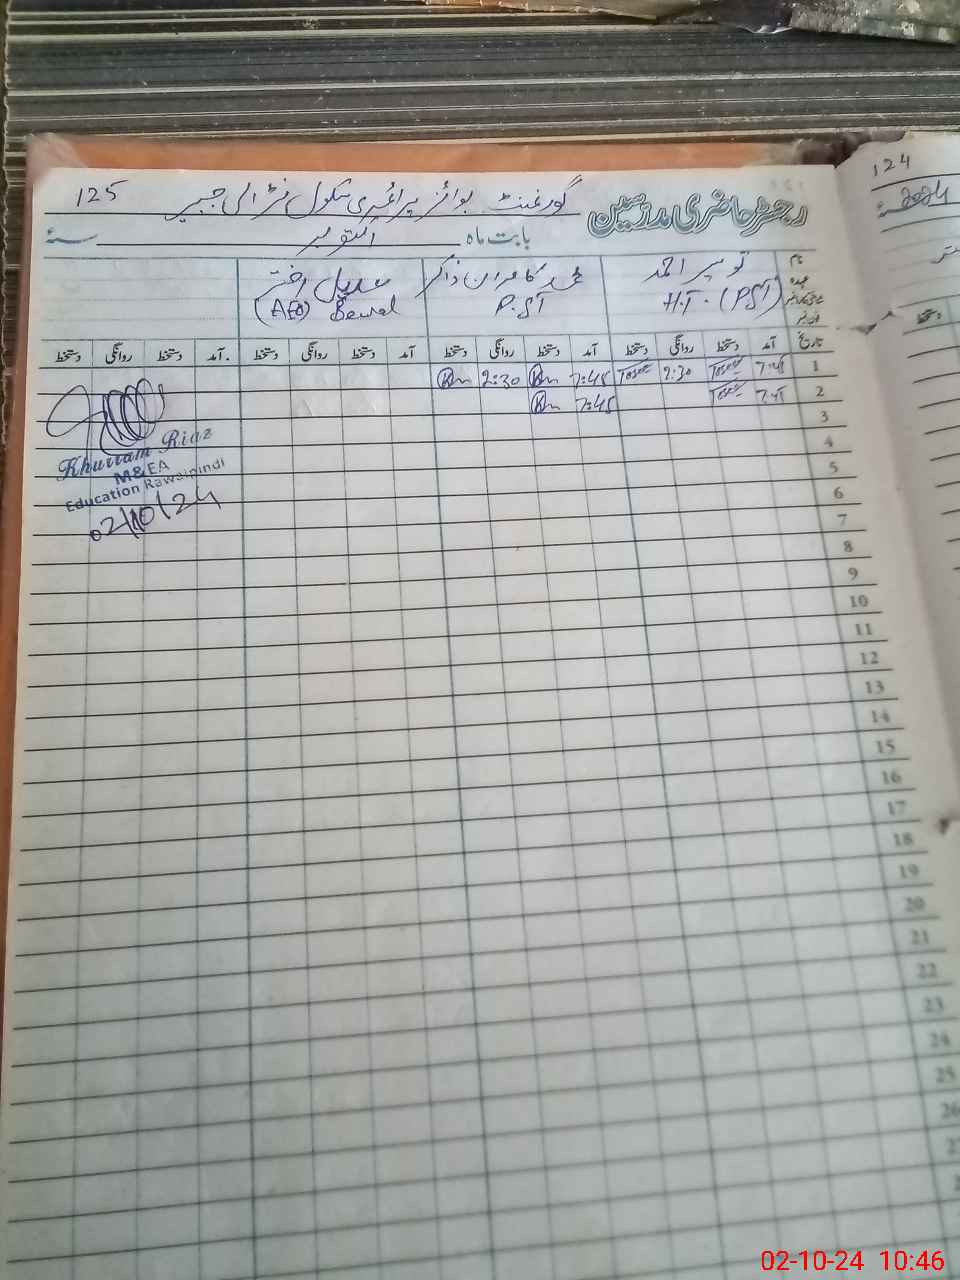 124
2024
رجسٹر حاضری مدرسین گورنمنٹ بوائز پرائمری سکول 125
بابت ماہ اکتوبر سنہ
نام احمد محمد کامران ذاکر عدیل اختر
عہدہ H.T. (PST) P.ST (AEO) Bewal
تاریخ آمد دستخط روانگی دستخط آمد دستخط روانگی دستخط آمد دستخط روانگی دستخط آمد دستخط روانگی دستخط
دستخط
1 7:45 2:30 7:45 2:30
2 7:45 7:45
3
4
5
6
7
8
9
10
11
12
13
14
15
16
17
18
19
20
21
22
23
24
25
26
Khurram Riaz
M&EA
Education Rawalpindi
02/10/24
02-10-24 10:46